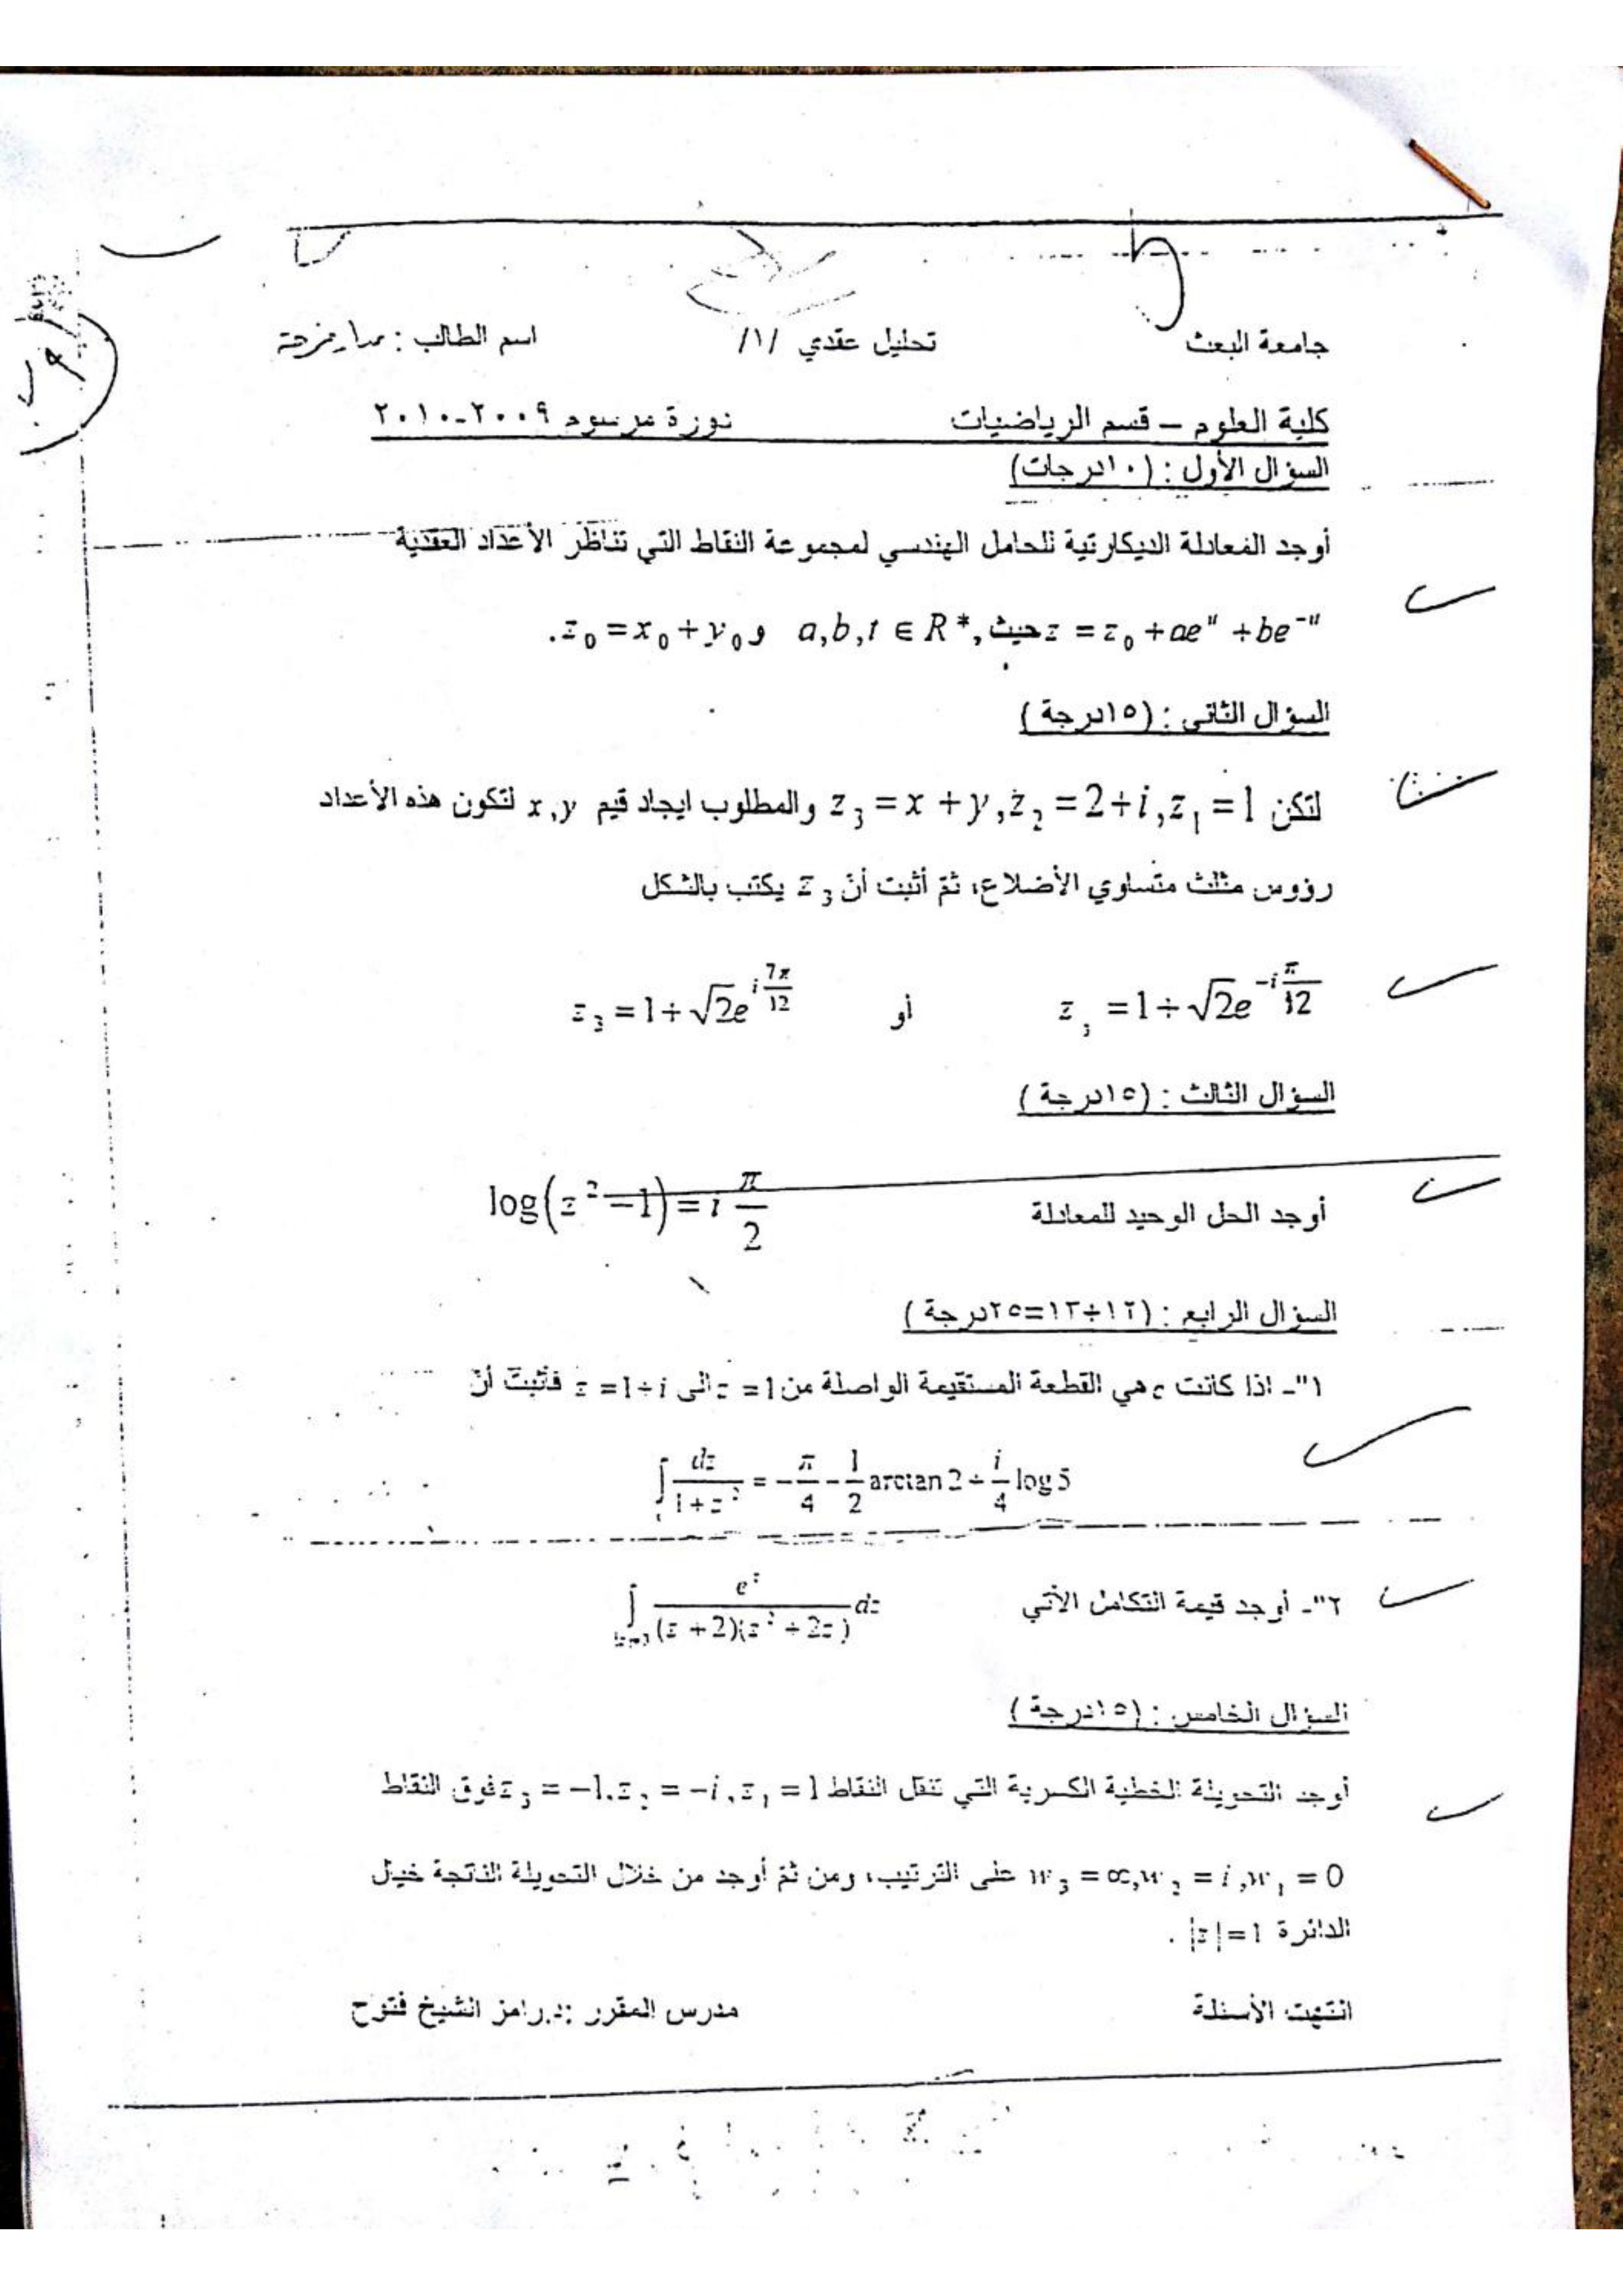 جامعة البعث تحليل عقدي /١/ اسم الطالب :
كلية العلوم – قسم الرياضيات دورة مرسوم ٢٠٠٩-٢٠١٠
السؤال الأول : (١٠درجات)
أوجد المعادلة الديكارتية للحامل الهندسي لمجموعة النقاط التي تناظر الأعداد العقدية
z = z₀ + ae^{it} + be^{-it} حيث a,b,t ∈ R*, و z₀ = x₀ + y₀.
السؤال الثاني : (١٥درجة )
لتكن z₃ = x + y, z₂ = 2+i, z₁ = 1 والمطلوب ايجاد قيم x,y لتكون هذه الأعداد
رؤوس مثلث متساوي الأضلاع، ثمّ أثبت أنّ z₃ يكتب بالشكل
z₃ = 1+√2e^{-iπ/12} أو z₃ = 1+√2e^{i7π/12}
السؤال الثالث : (١٥درجة )
أوجد الحل الوحيد للمعادلة log(z²−1) = i π/2
السؤال الرابع : (١٢+١٣=٢٥درجة )
١"- اذا كانت c هي القطعة المستقيمة الواصلة من z = 1 الى z = 1+i فأثبت أنّ
∫_c dz/(1+z²) = −π/4 − 1/2 arctan 2 + i/4 log 5
٢"- أوجد قيمة التكامل الآتي ∫_{|z|=3} e^z/((z+2)(z²+2z)) dz
السؤال الخامس : (١٥درجة )
أوجد التحويلة الخطية الكسرية التي تنقل النقاط z₃ = −1, z₂ = −i, z₁ = 1 فوق النقاط
w₃ = ∞, w₂ = i, w₁ = 0 على الترتيب، ومن ثمّ أوجد من خلال التحويلة الناتجة خيال
الدائرة |z| = 1 .
انتهت الأسئلة مدرس المقرر :د.رامز الشيخ فتوح